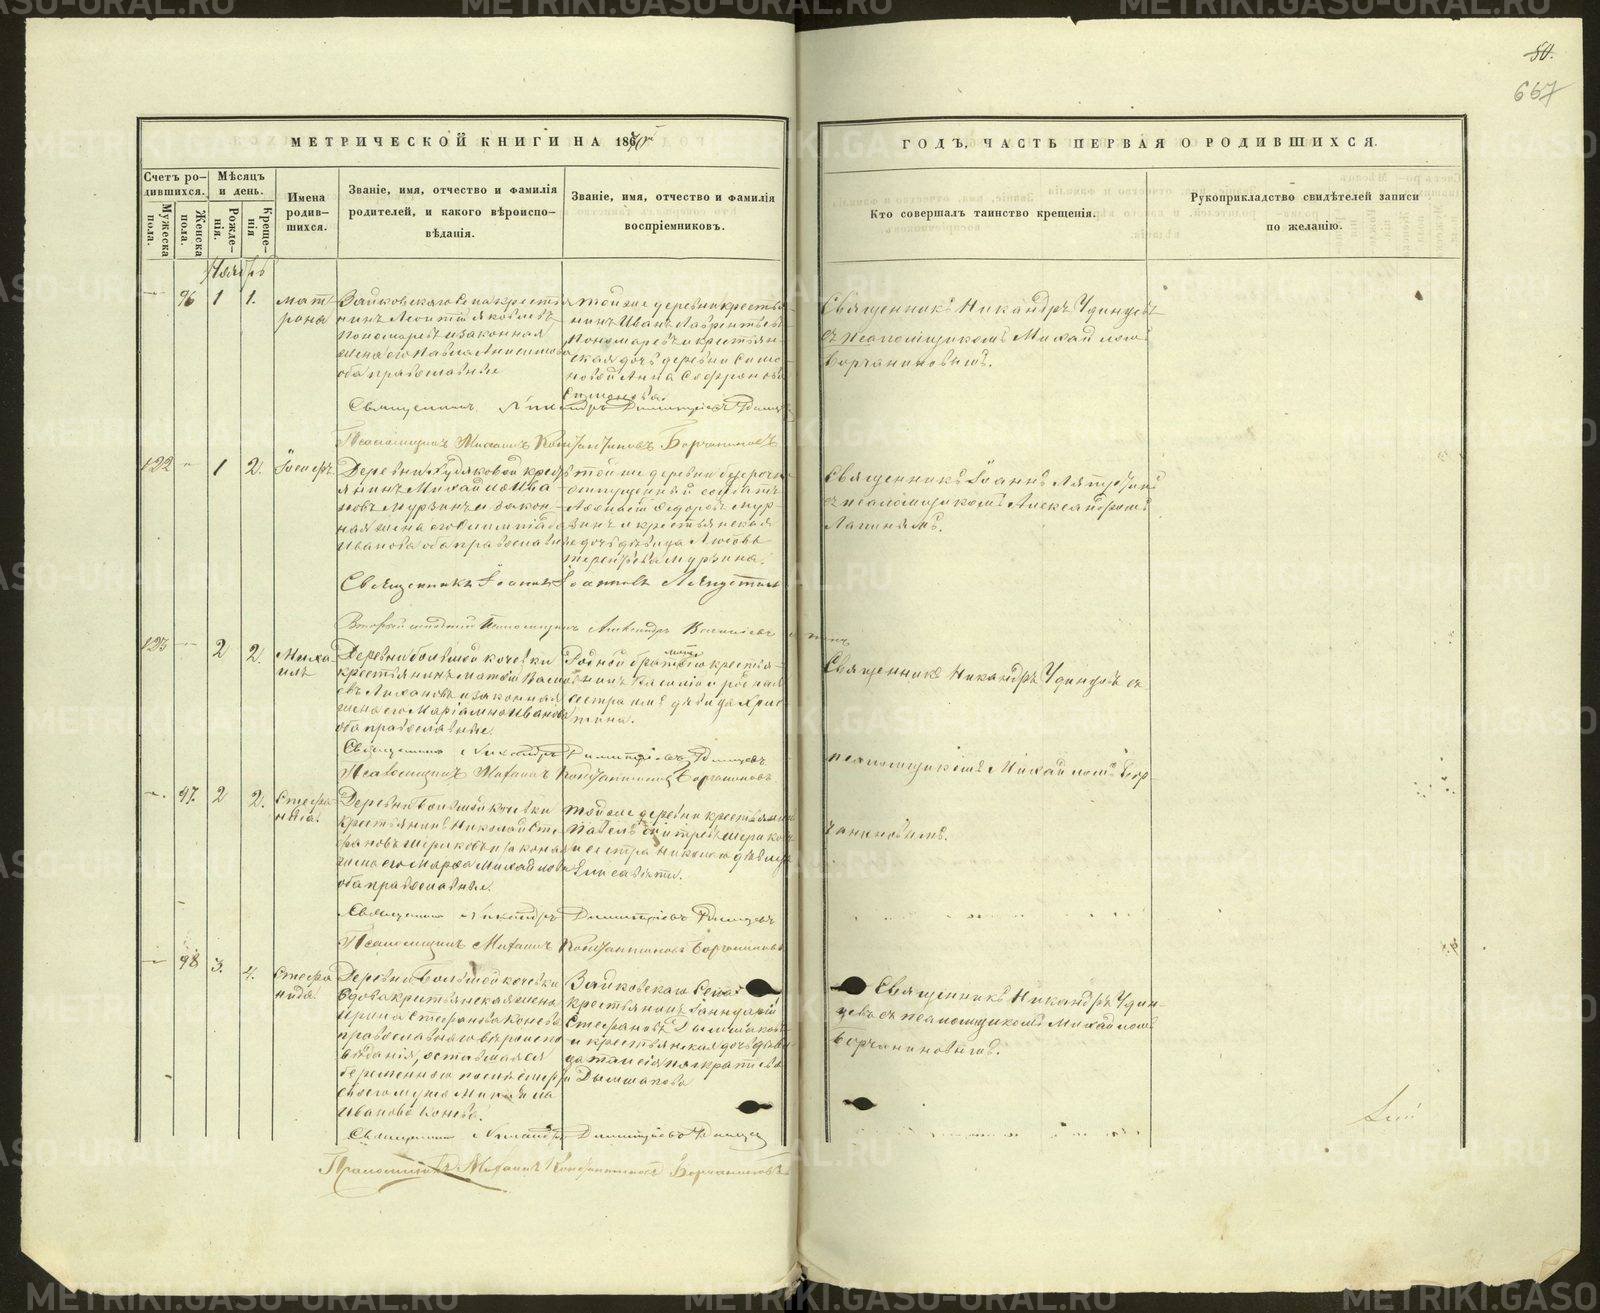 METRIKI.GASO-URAL.RU
50.
667
МЕТРИЧЕСКОЙ КНИГИ НА 1870й
ГОДЪ, ЧАСТЬ ПЕРВАЯ О РОДИВШИХСЯ.
Счетъ родившихся.
Мужеска пола.
Женска пола.
Мѣсяцъ и день.
Рожденія.
Крещенія
Имена родившихся.
Званіе, имя, отчество и фамилія
родителей, и какого вѣроиспо-
вѣданія.
Званіе, имя, отчество и фамилія
воспріемниковъ.
Кто совершалъ таинство крещенія.
Рукоприкладство свидѣтелей записи
по желанію.
96 1 1.
Мат
рона
Зайковскаго Села крестья
нинъ
Пономаревъ и законная
жена его Павла Анисимова
оба православные
той же деревни крестья
нинъ Иванъ Лаврентьевъ
Пономаревъ и крестьян-
ская дочь деревни Симо-
новой Анна Софронова
Симонова.
Священникъ Никандръ Удинцевъ
съ псаломщикомъ Михайломъ
Борчаниновымъ.
Священникъ Никандръ Димитріевъ Удинцевъ
Псаломщикъ Михаилъ Константиновъ Борчаниновъ
122 1 2.
Іосифъ
Деревни Худяковой кресть
янинъ Михайло Ива
новъ Мурзинъ и закон-
ная жена его Олимпіада
Иванова оба православные
той же деревни безсрочно
отпущенный солдатъ
Афанасій Федоровъ Мур-
зинъ и крестьянская
дочь девица Любовь
Терентьева Мурзина.
Священникъ Іоаннъ
съ псаломщикомъ Александромъ
Лапинымъ.
Священникъ Іоаннъ Іоанновъ
Псаломщикъ Александръ Васильевъ
123 2 2.
Миха
илъ
Деревни большой кочевки
крестьянинъ Матвѣй
Лихановъ и законная
жена его Маріамна Иванова
оба православные.
Родной братъ его крестья-
нинъ Василій и родная
сестра имъ дѣвица Хрис
тина.
Священникъ Никандръ Удинцевъ съ
псаломщикомъ Михайломъ Бор-
чаниновымъ.
Священникъ Никандръ Димитріевъ Удинцевъ
Псаломщикъ Михаилъ Константиновъ Борчаниновъ
97. 2 2.
Стефа-
нида.
Деревни Большой кочевки
крестьянинъ Николай Сте
фановъ и законная
жена его Марѳа Михайлова
оба православные.
той же деревни крестьянинъ
Павелъ Димитріевъ
и сестра Николаю дѣвица
Елисавета.
Священникъ Никандръ Димитріевъ Удинцевъ
Псаломщикъ Михаилъ Константиновъ Борчаниновъ
98 3. 4.
Стефа
нида.
Деревни Большой кочевки
вдова крестьянская жена
Ирина Стефанова Конева
православнаго вѣроиспо
вѣданія, оставшаяся
беременною послѣ смерти
своего мужа Михаила
Иванова Конева.
Зайковскаго Села
крестьянинъ Іаннуарій
Стефановъ Дымшаковъ
и крестьянская дочь дѣви
ца Таисія Панкратьева
Дымшакова
Священникъ Никандръ Удин-
цевъ съ псаломщикомъ Михайломъ
Борчаниновымъ.
Священникъ Никандръ Димитріевъ Удинцевъ
Псаломщикъ Михаилъ Константиновъ Борчаниновъ